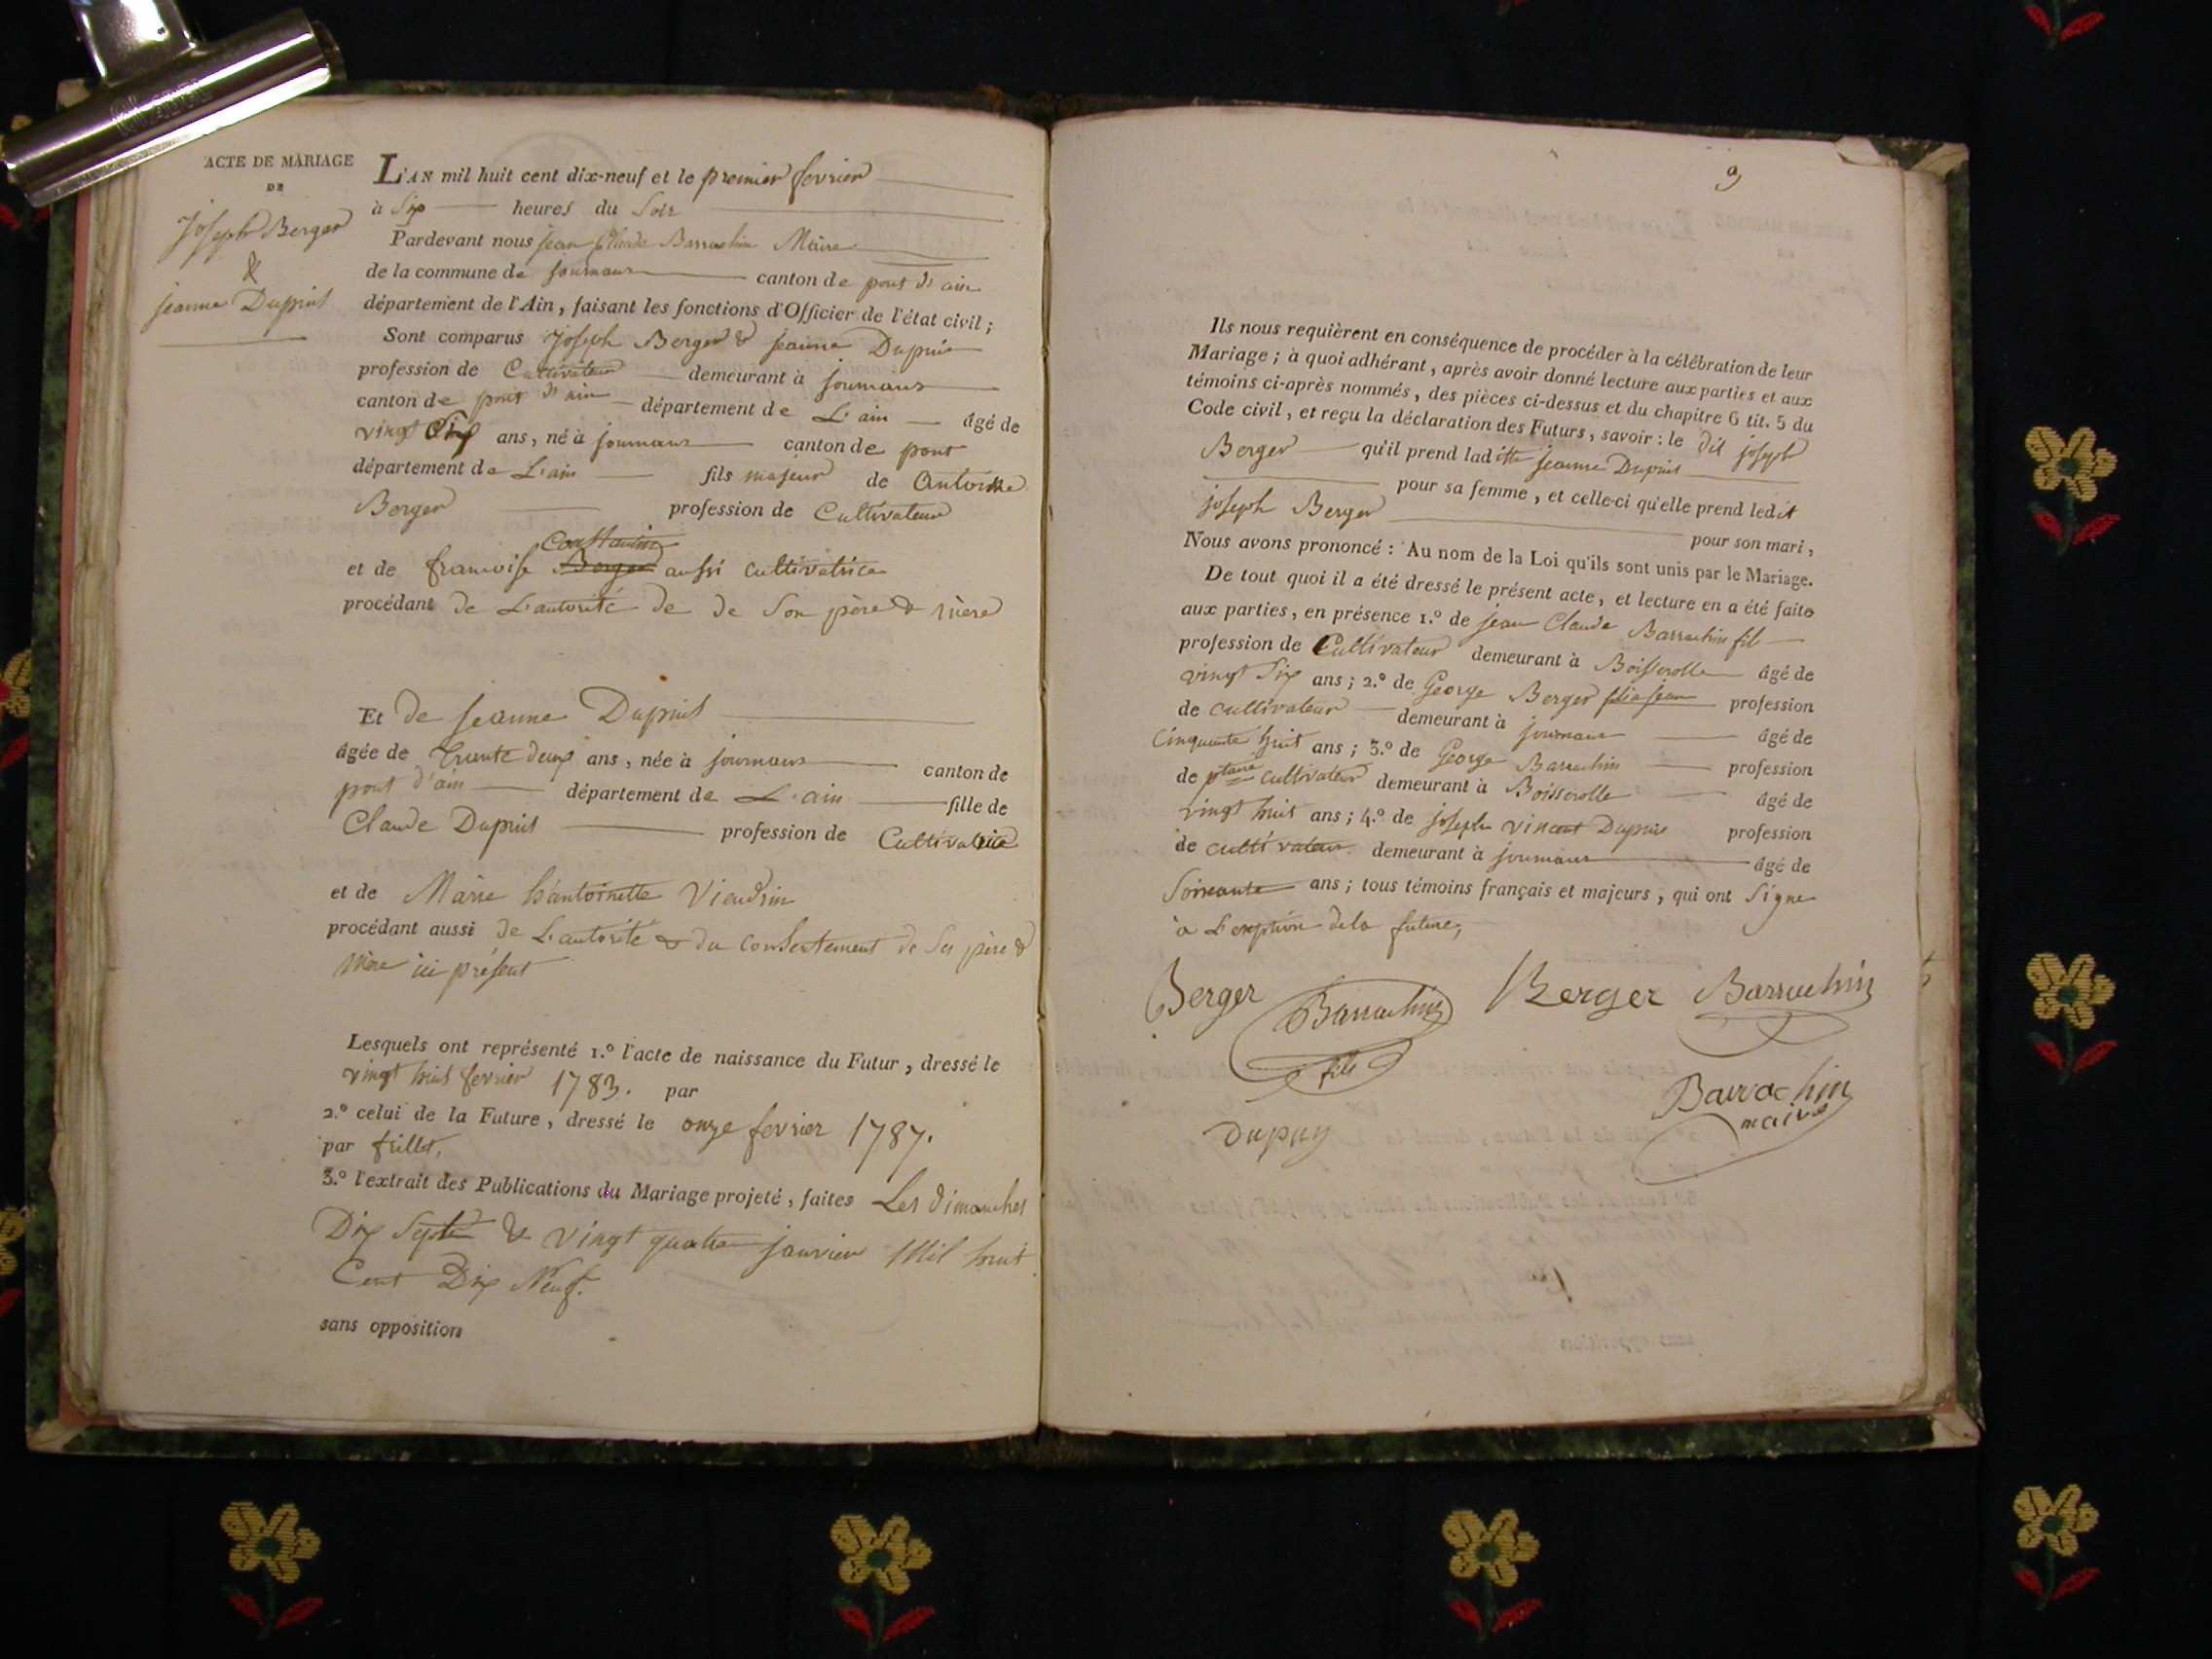 ACTE DE MARIAGE
DE
Joseph Berger
&
jeanne Dupuis
L'AN mil huit cent dix-neuf et le premier fevrier
à Six heures du Soir
Pardevant nous jean Claude Barrachin Maire
de la commune de journans canton de pont d'ain
département de l'Ain, faisant les fonctions d'Officier de l'état civil;
Sont comparus Joseph Berger & jeanne Dupuis
profession de Cultivateur demeurant à journans
canton de pont d'ain département de L'ain âgé de
vingt Six ans, né à journans canton de pont
département de L'ain fils majeur de Antoine
Berger profession de Cultivateur
Constantin
et de francoise Berger aussi cultivatrice
procédant de L'autorité de de Son père & mère
Et de jeanne Dupuis
âgée de trente deux ans, née à journans canton de
pont d'ain département de L'ain fille de
Claude Dupuis profession de Cultivatrice
et de Marie Viendrin
procédant aussi de L'autorité & du Consentement de Ses père &
Mère ici présent
Lesquels ont représenté 1.º l'acte de naissance du Futur, dressé le
vingt huit fevrier 1783. par
2.º celui de la Future, dressé le onze fevrier 1787.
par frillet,
3.º l'extrait des Publications du Mariage projeté, faites Les dimanches
Dix Sept & vingt quatre janvier Mil huit
Cent Dix Neuf.
sans opposition
9
Ils nous requièrent en conséquence de procéder à la célébration de leur
Mariage; à quoi adhérant, après avoir donné lecture aux parties et aux
témoins ci-après nommés, des pièces ci-dessus et du chapitre 6 tit. 5 du
Code civil, et reçu la déclaration des Futurs, savoir: le dit joseph
Berger qu'il prend laditte jeanne Dupuis
pour sa femme, et celle-ci qu'elle prend ledit
joseph Berger pour son mari,
Nous avons prononcé: Au nom de la Loi qu'ils sont unis par le Mariage.
De tout quoi il a été dressé le présent acte, et lecture en a été faite
aux parties, en présence 1.º de jean Claude Barrachin fils
profession de Cultivateur demeurant à Boisserolle âgé de
vingt Six ans; 2.º de George Berger profession
de cultivateur demeurant à journans âgé de
Cinquante huit ans; 3.º de George Barrachin profession
de cultivateur demeurant à Boisserolle âgé de
vingt huit ans; 4.º de joseph vincent Dupuis profession
de cultivateur demeurant à journans âgé de
Soixante ans; tous témoins français et majeurs, qui ont Signe
à L'exeption dela future,
Berger Barrachin fils Berger Barrachin
Barrachin
maire
Dupuy